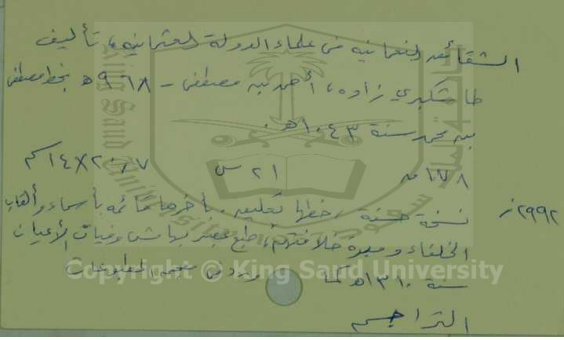 الشقائق النعمانية في علماء الدولة العثمانية، تأليف
طاشكبري زاده، أحمد بن مصطفى - ٩٦٨هـ بخط مصطفى
بن محمد سنة ١٠٤٣هـ.
١٧٨ ق ٢١ س ٢٠٫٧×١٤ سم
٢٩٩٢ ز نسخة حسنة، خطها تعليق، بآخرها قائمة بأسماء وألقاب
الخلفاء ومدة خلافتهم، طبع بمصر بهامش وفيات الأعيان
سنة ١٣١٠هـ كما ورد في معجم المطبوعات
التراجم
Copyright © King Saud University
King Saud University